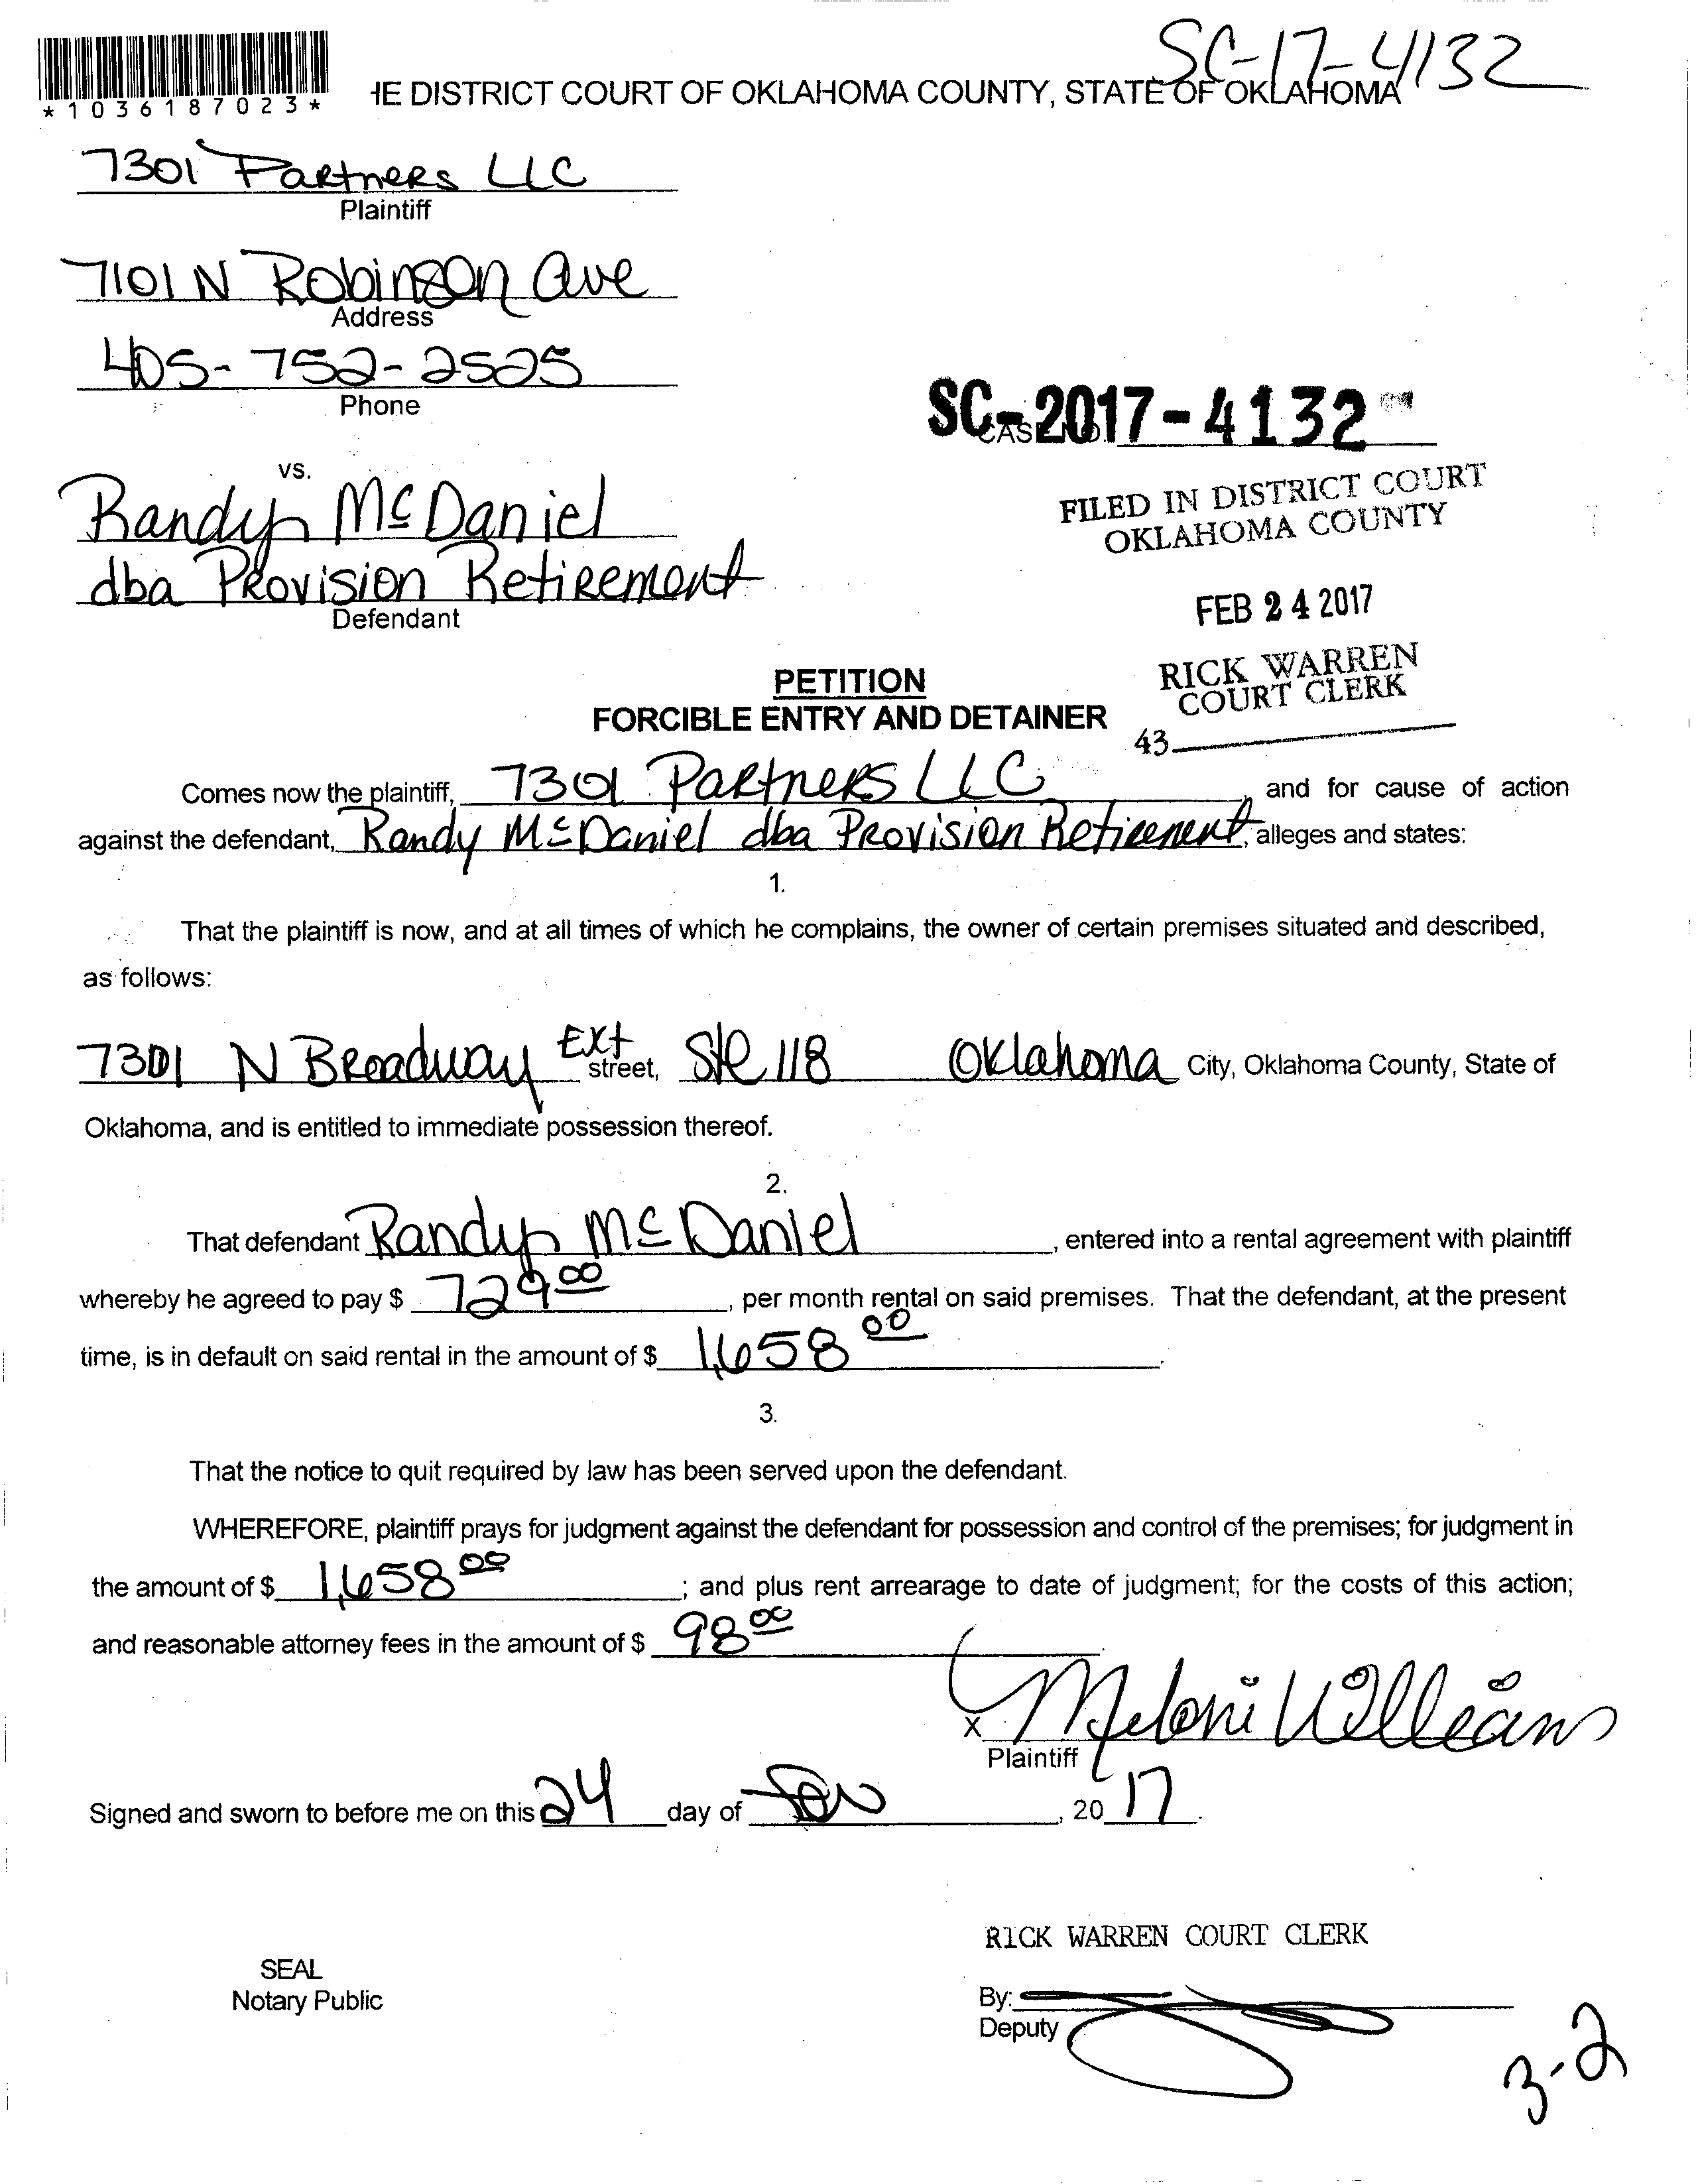 SC-17-4132
*1036187023*
HE DISTRICT COURT OF OKLAHOMA COUNTY, STATE OF OKLAHOMA
7301 Partners LLC
Plaintiff
7101 N Robinson Ave
Address
405-752-2525
Phone
SC-2017-4132
CAS
vs.
FILED IN DISTRICT COURT
OKLAHOMA COUNTY
Randy McDaniel
dba Provision Retirement
Defendant
FEB 24 2017
RICK WARREN
COURT CLERK
43
PETITION
FORCIBLE ENTRY AND DETAINER
Comes now the plaintiff, 7301 Partners LLC, and for cause of action
against the defendant, Randy McDaniel dba Provision Retirement, alleges and states:
1.
That the plaintiff is now, and at all times of which he complains, the owner of certain premises situated and described,
as follows:
7301 N Broadway Ext street, Ste 118 Oklahoma City, Oklahoma County, State of
Oklahoma, and is entitled to immediate possession thereof.
2.
That defendant Randy McDaniel, entered into a rental agreement with plaintiff
whereby he agreed to pay $ 729 00, per month rental on said premises. That the defendant, at the present
time, is in default on said rental in the amount of $ 1,658 00.
3.
That the notice to quit required by law has been served upon the defendant.
WHEREFORE, plaintiff prays for judgment against the defendant for possession and control of the premises; for judgment in
the amount of $ 1,658 00; and plus rent arrearage to date of judgment; for the costs of this action;
and reasonable attorney fees in the amount of $ 98 00.
x Meloni Williams
Plaintiff
Signed and sworn to before me on this 24 day of Feb, 20 17.
RICK WARREN COURT CLERK
SEAL
Notary Public
By:
Deputy
3-2